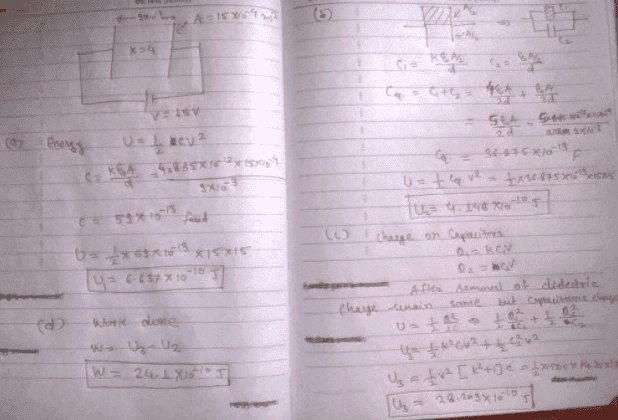 3×10⁻³
A = 15×10⁻⁴ m²
K=4
V = 15V
(a) Energy U = 1/2 CV²
C = Kε₀A/d = 4×8.85×10⁻¹²×15×10⁻⁴/3×10⁻³
C = 59×10⁻¹³ farad
U = 1/2 × 59×10⁻¹³ × 15×15
U₁ = 6.637×10⁻¹⁰ J
(d) Work done
W = U₃ - U₂
W = 24.1×10⁻¹⁰ J
(b) A/2
A/2
C₁
C₂
C₁ = Kε₀A/2/d C₂ = ε₀A/2/d
Ceq = C₁+C₂ = 4ε₀A/2d + ε₀A/2d
= 5ε₀A/2d
Ceq = 36.875×10⁻¹³ F
U = 1/2 Ceq V² = 1/2×36.875×10⁻¹³×15×15
U₂ = 4.148×10⁻¹⁰ J
(c) Charge on Capacitors
Q₁ = KCV
Q₂ = CV
After removal of dielectric
Charge remain same but capacitance change
U = 1/2 Q²/C ⇒ 1/2 Q₁²/C₁ + 1/2 Q₂²/C₂
U₃ = 1/2 K²CV² + 1/2 CV²
U₃ = 1/2 V² [K²+1]C
U₃ = 28.203×10⁻¹⁰ J